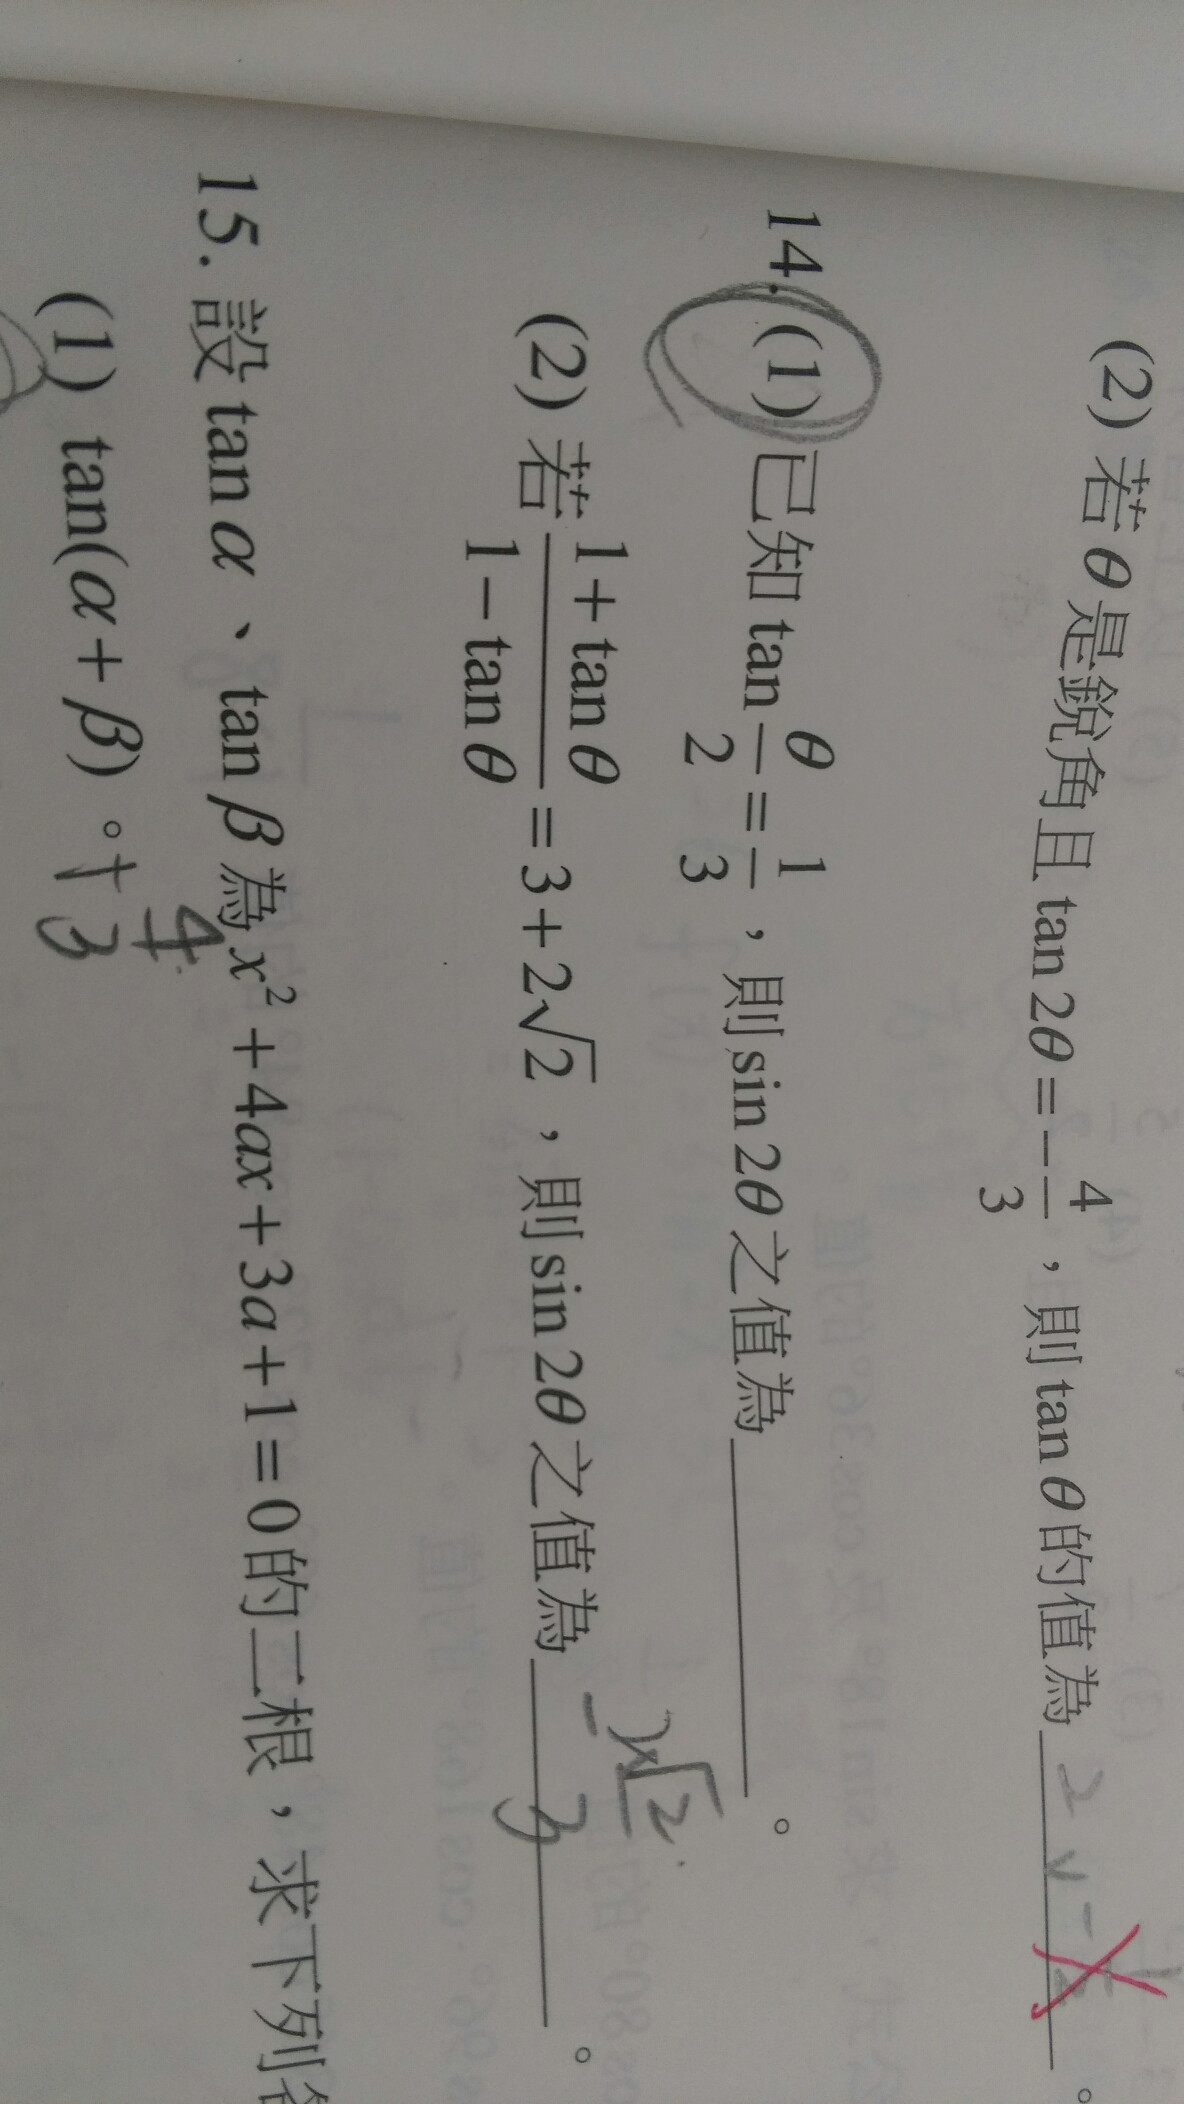 (2) 若 θ 是銳角且 tan 2θ = -4/3，則 tan θ 的值為 2
14. (1) 已知 tan θ/2 = 1/3，則 sin 2θ 之值為＿＿＿。
(2) 若 (1 + tan θ)/(1 - tan θ) = 3 + 2√2，則 sin 2θ 之值為 √2 3 。
15. 設 tan α、tan β 為 x² + 4ax + 3a + 1 = 0 的二根，求下列各
(1) tan(α + β)。 + 4/3